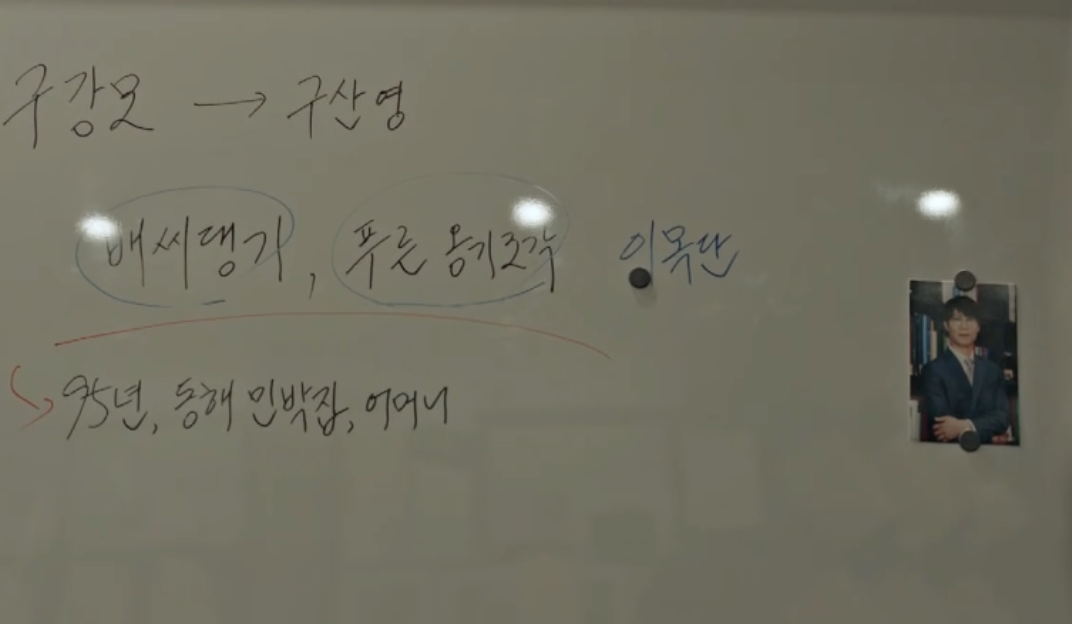 구강모 → 구산영
배씨댕기, 푸른 옹기조각 이목단
95년, 동해 민박집, 어머니